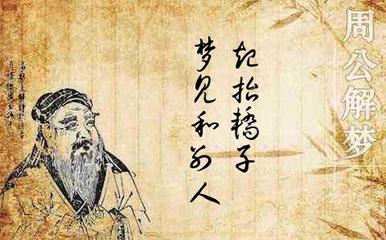 周公解梦
梦见和别人
起抬轿子